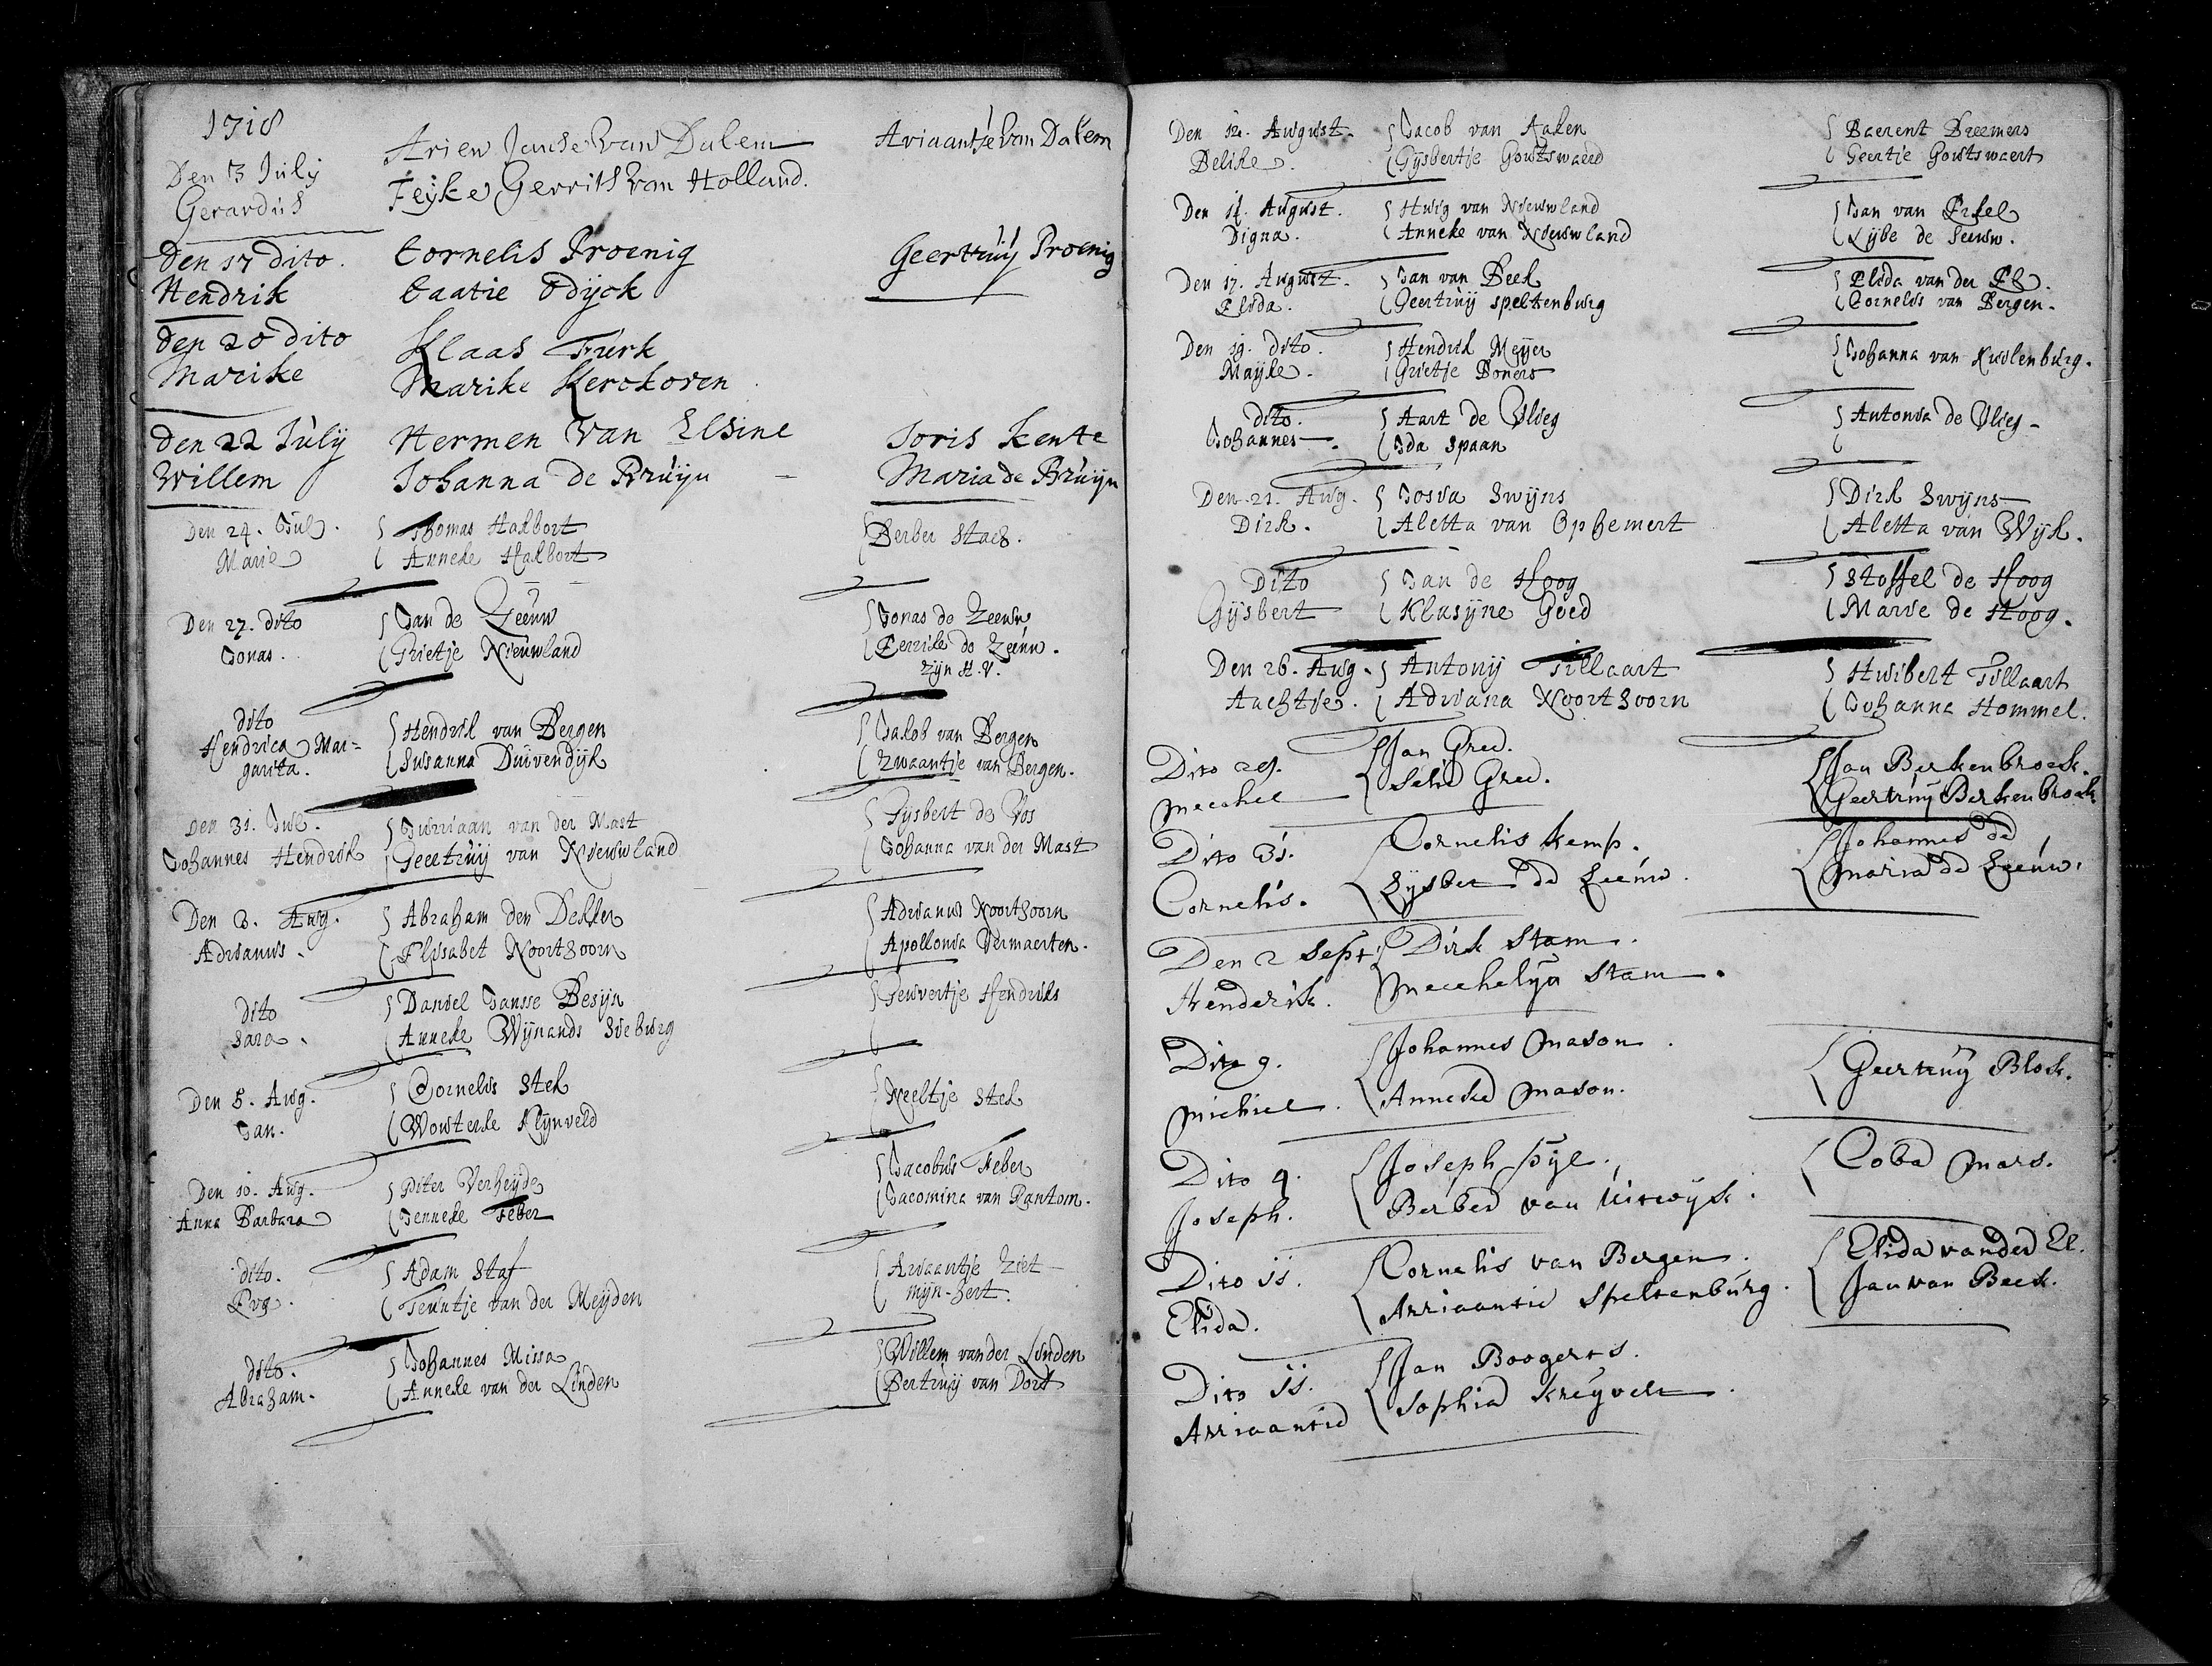 1718
Den 3 July Arien Janse van Dalem Ariaantje van Dalem
Gerardus Feyke Gerrits van Holland.
Den 17 dito. Cornelis Proenig Geertruy Proenig
Hendrik Caatie Odijck
den 20 dito Klaas Turk
Marike Marike Kerckoven
den 22 Julij Hermen van Elsine Joris Kente
Willem Johanna de Bruijn Maria de Bruijn
Den 24. Jul. Thomas Hakbort Berber Staes.
Marie Anneke Hakbort
Den 27. dito Jan de Zeeuw Jonas de Zeeuw
Jonas. Grietje Nieuwland de Zeeuw.
zyn H. V.
dito Hendrik van Bergen Jakob van Bergen
Hendrica Mar= Susanna Duivendijk Zwaantje van Bergen.
garita.
Den 31. Jul. Jurriaan van der Mast Gijsbert de Vos
Johannes Hendrik Geertruij van Nieuwland Johanna van der Mast
Den 3. Aug. Abraham den Dekker Adrianus Noorthoorn
Adrianus. Elisabet Noorthoorn Apollonia Vermaerten.
dito Daniel Jansse Besijn Hendriks
Sara. Anneke Wijnands
Den 5. Aug. Cornelis Stek Neeltje Stek
Jan. Wouterke Kleynveld
Den 10. Aug. Piter Verheijde Jacobus Feber
Anna Barbara Jenneke Feber Jacomina van Rantom.
dito. Adam Staf Ariaantje Ziet
Eva. Teuntje van der Meijden mijn-hert.
dito. Johannes Missa Willem van der Linden
Abraham. Anneke van der Linden Bertruij van Dort
Den 12. August. Jacob van Aalen Baerent Breemers
Belike. Gijsbertje Goutswaerd Geertje Goutswaert
Den 14. August. Huig van Nieuwland Jan van Erkel
Digna. Anneke van Nieuwland Lijbe de Leeuw.
Den 17. August. Jan van Beek Elida van der El.
Elida. Geertruij Speltenburg Cornelis van Bergen.
Den 19. dito. Hendrik Meijer Johanna van Kuilenburg.
Mayke. Grietje Boners
dito. Aart de Vlieg Antonia de Vlieg
Johannes. Ida Spaan
Den 21. Aug. Josua Swijns Dirk Swijns
Dirk. Aletta van Ophemert Aletta van Wijk.
Dito Jan de Hoog Stoffel de Hoog
Gijsbert Klasijne Goed Marie de Hoog.
Den 26. Aug. Antonij Tillaart Huibert Tillaart
Aachtje. Adriana Noorthoorn Johanna Hommel.
Dito 29. Jan Gred. Jan Berkenbroek.
Mechel Gred. Geertruij Berkenbroek
Dito 31. Cornelis Kemp. Johannes de
Cornelis. Lijsbet de Leeuw. Maria de Leeuw.
Den 2 Sept. Dirk Stam.
Henderik. Mechelyn Stam.
Dito 9. Johannes Mason Geertruij Blok.
Michiel. Anneke Mason.
Dito 9. Joseph Pijl. Coba Mars.
Joseph. Berber van Uitwijk.
Dito 11. Cornelis van Bergen. Elida van der El.
Elida. Arriaantie Speltenburg. Jan van Beek.
Dito 11. Jan Boogerts.
Arriaantie Sophia Kreijvelt.